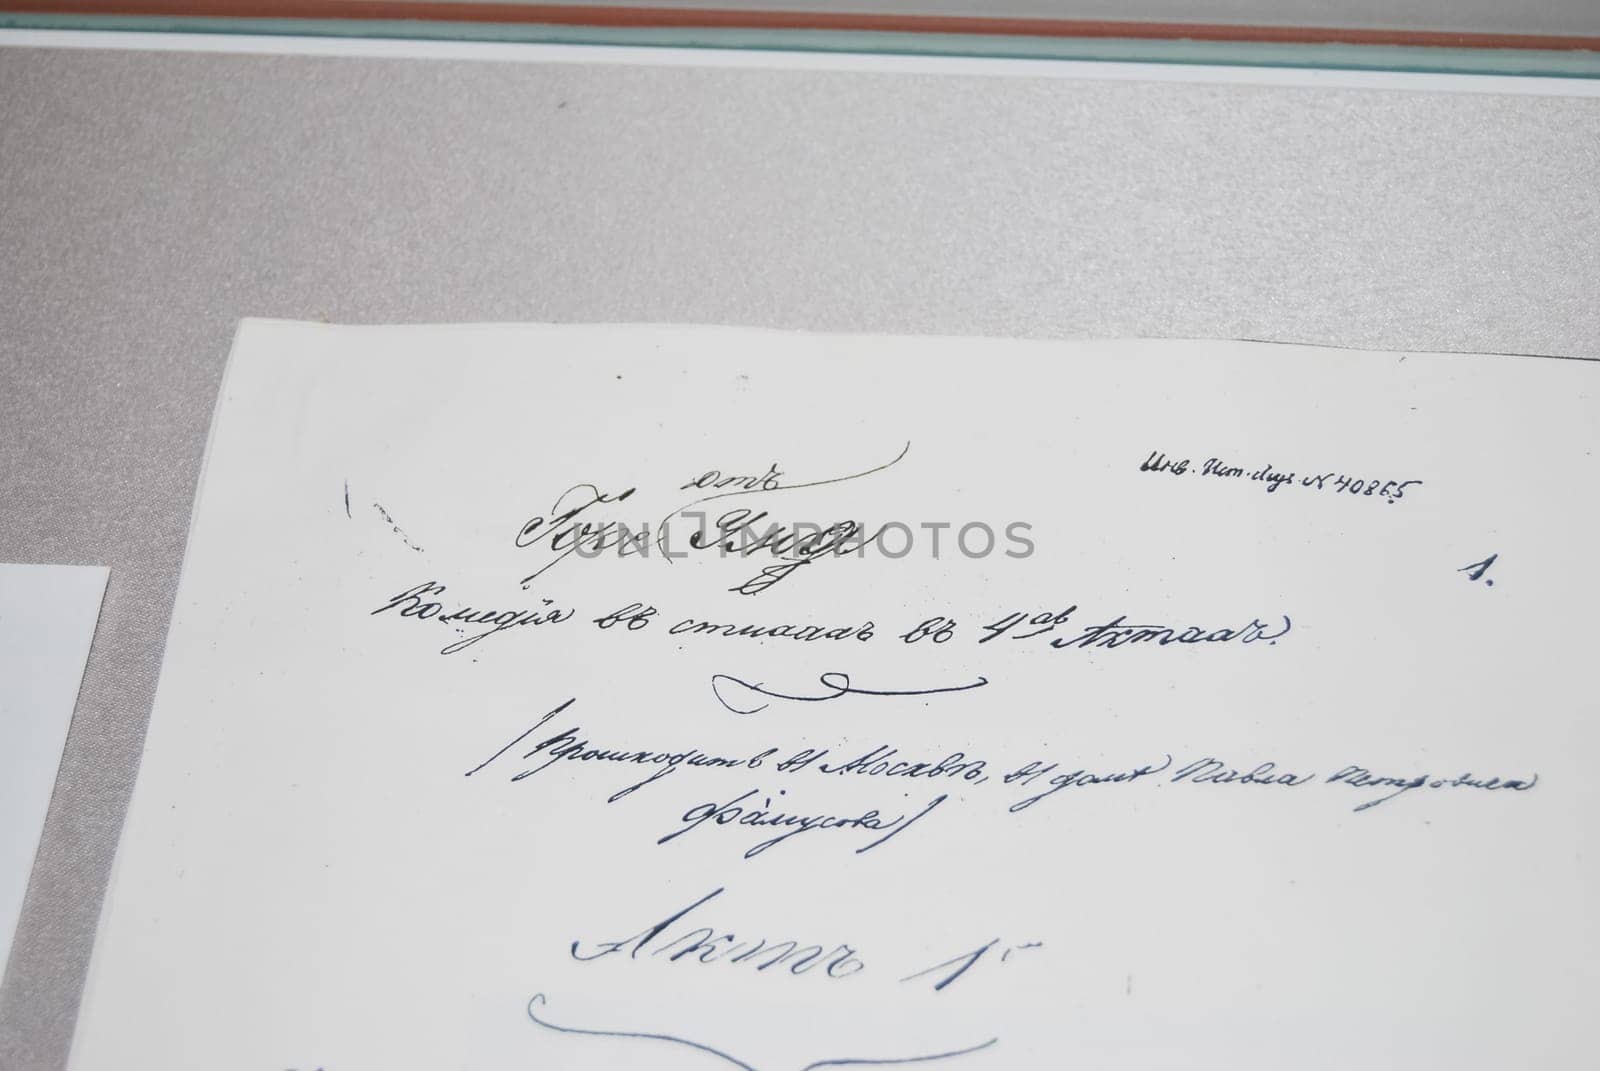 Инв. Ист. Муз. N 40865
отъ
Горе Ума
1.
Комедія въ стихахъ въ 4хъ Актахъ.
/ Происходитъ въ Москвѣ, въ домѣ Павла Петровича
Фамусова /
Актъ 1й
UNLIMPHOTOS